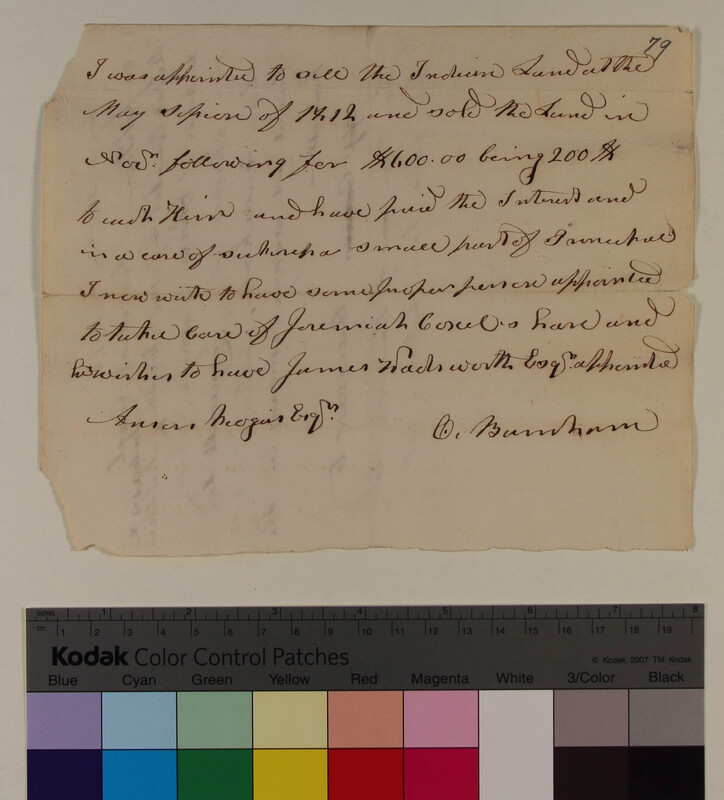 79
I was appointed to sell the Indian Land at the
May session of 1812 and sold the Land in
Novr. following for $600.00 being 200 $
to each Heir and have paid the Interest and
in a case of sickness a small part of Principal
I now wish to have some proper person appointed
to take Care of Jeremiah Cornel's share and
he wishes to have James Wadsworth Esqr. appointed
Esqr. C. Burnham
inches 1 2 3 4 5 6 7 8
cm 1 2 3 4 5 6 7 8 9 10 11 12 13 14 15 16 17 18 19
Kodak Color Control Patches
© Kodak, 2007 TM: Kodak
Blue Cyan Green Yellow Red Magenta White 3/Color Black